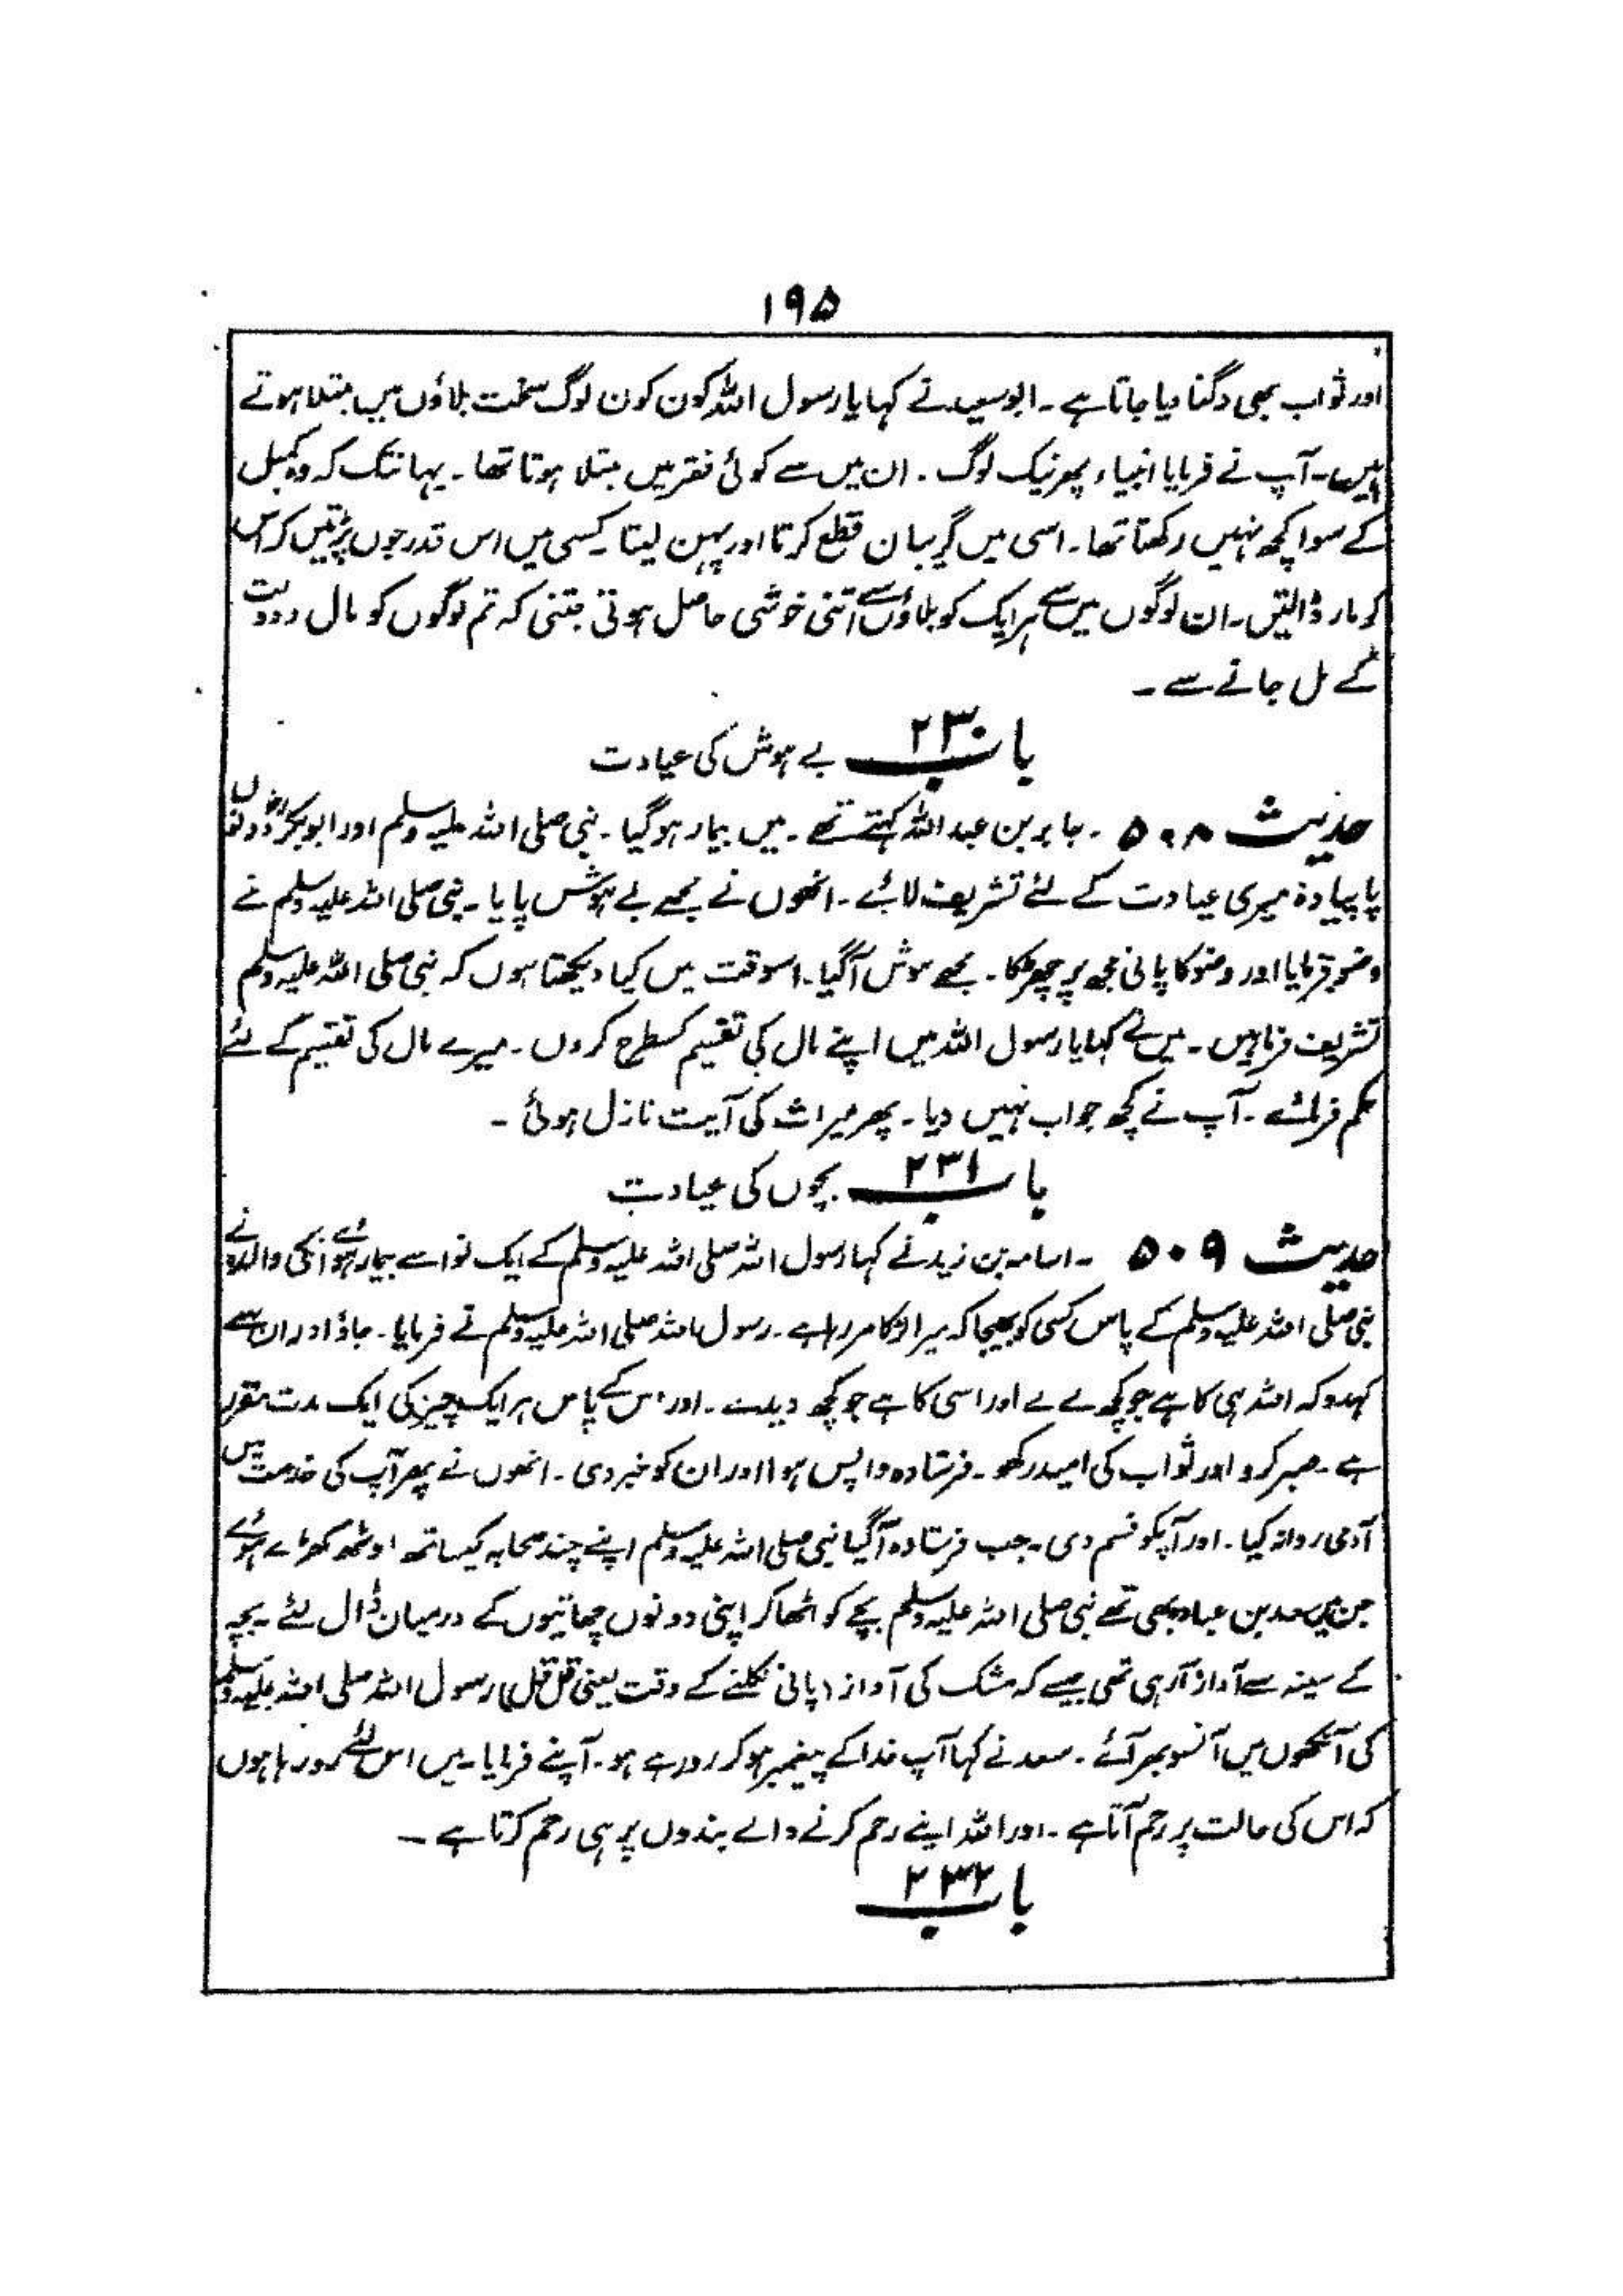 ۱۹۵
اور ثواب بھی دگنا دیا جاتا ہے۔ ابوسعید نے کہا یا رسول اللہ کون کون لوگ سخت بلاؤں میں مبتلا ہوتے
ہیں۔ آپ نے فرمایا انبیاء پھر نیک لوگ۔ ان میں سے کوئی فقر میں مبتلا ہوتا تھا۔ یہانتک کہ وہ کمبل
کے سوا کچھ نہیں رکھتا تھا۔ اسی میں گریبان قطع کرتا اور پہن لیتا۔ کسی میں اس قدر جوں پڑتیں کہ اس
کو مار ڈالتیں۔ ان لوگوں میں سے ہر ایک کو بلاؤں سے اتنی خوشی حاصل ہوتی جتنی کہ تم لوگوں کو مال ودولت
کے مل جانے سے۔
باب ۲۳۰ بے ہوش کی عیادت
حدیث ۵۰۸ ۔ جابر بن عبداللہ کہتے تھے۔ میں بیمار ہوگیا۔ نبی صلی اللہ علیہ وسلم اور ابوبکرؓ دونوں
پا پیادہ میری عیادت کے لئے تشریف لائے۔ انھوں نے مجھے بے ہوش پایا۔ نبی صلی اللہ علیہ وسلم نے
وضو فرمایا اور وضو کا پانی مجھ پر چھڑکا۔ مجھے ہوش آگیا۔ اسوقت میں کیا دیکھتا ہوں کہ نبی صلی اللہ علیہ وسلم
تشریف فرما ہیں۔ میں نے کہا یا رسول اللہ میں اپنے مال کی تقسیم کسطرح کروں۔ میرے مال کی تقسیم کے لئے
حکم فرمائے۔ آپ نے کچھ جواب نہیں دیا۔ پھر میراث کی آیت نازل ہوئی۔
باب ۲۳۱ بچوں کی عیادت
حدیث ۵۰۹ ۔ اسامہ بن زید نے کہا رسول اللہ صلی اللہ علیہ وسلم کے ایک نواسے بیمار ہوئے انکی والدہ نے
نبی صلی اللہ علیہ وسلم کے پاس کسی کو بھیجا کہ میرا لڑکا مر رہا ہے۔ رسول اللہ صلی اللہ علیہ وسلم نے فرمایا۔ جاؤ اور ان سے
کہدو کہ اللہ ہی کا ہے جو کچھ لے لے اور اسی کا ہے جو کچھ دیدے۔ اور اس کے پاس ہر ایک چیز کی ایک مدت مقرر
ہے۔ صبر کرو اور ثواب کی امید رکھو۔ فرستادہ واپس ہوا اور ان کو خبر دی۔ انھوں نے پھر آپ کی خدمت میں
آدمی روانہ کیا۔ اور آپکو قسم دی۔ جب فرستادہ آگیا نبی صلی اللہ علیہ وسلم اپنے چند صحابہ کیساتھ اوٹھ کھڑے ہوئے
جن میں سعد بن عبادہ بھی تھے نبی صلی اللہ علیہ وسلم بچے کو اٹھا کر اپنی دونوں چھاتیوں کے درمیان ڈال لئے۔ بچہ
کے سینہ سے آواز آرہی تھی جیسے کہ مشک کی آواز (پانی نکلنے کے وقت یعنی قل قل) رسول اللہ صلی اللہ علیہ وسلم
کی آنکھوں میں آنسو بھر آئے۔ سعد نے کہا آپ خدا کے پیغمبر ہوکر رو رہے ہو۔ آپنے فرمایا۔ میں اس لئے رو رہا ہوں
کہ اس کی حالت پر رحم آتا ہے۔ اور اللہ اپنے رحم کرنے والے بندوں پر ہی رحم کرتا ہے۔
باب ۲۳۲